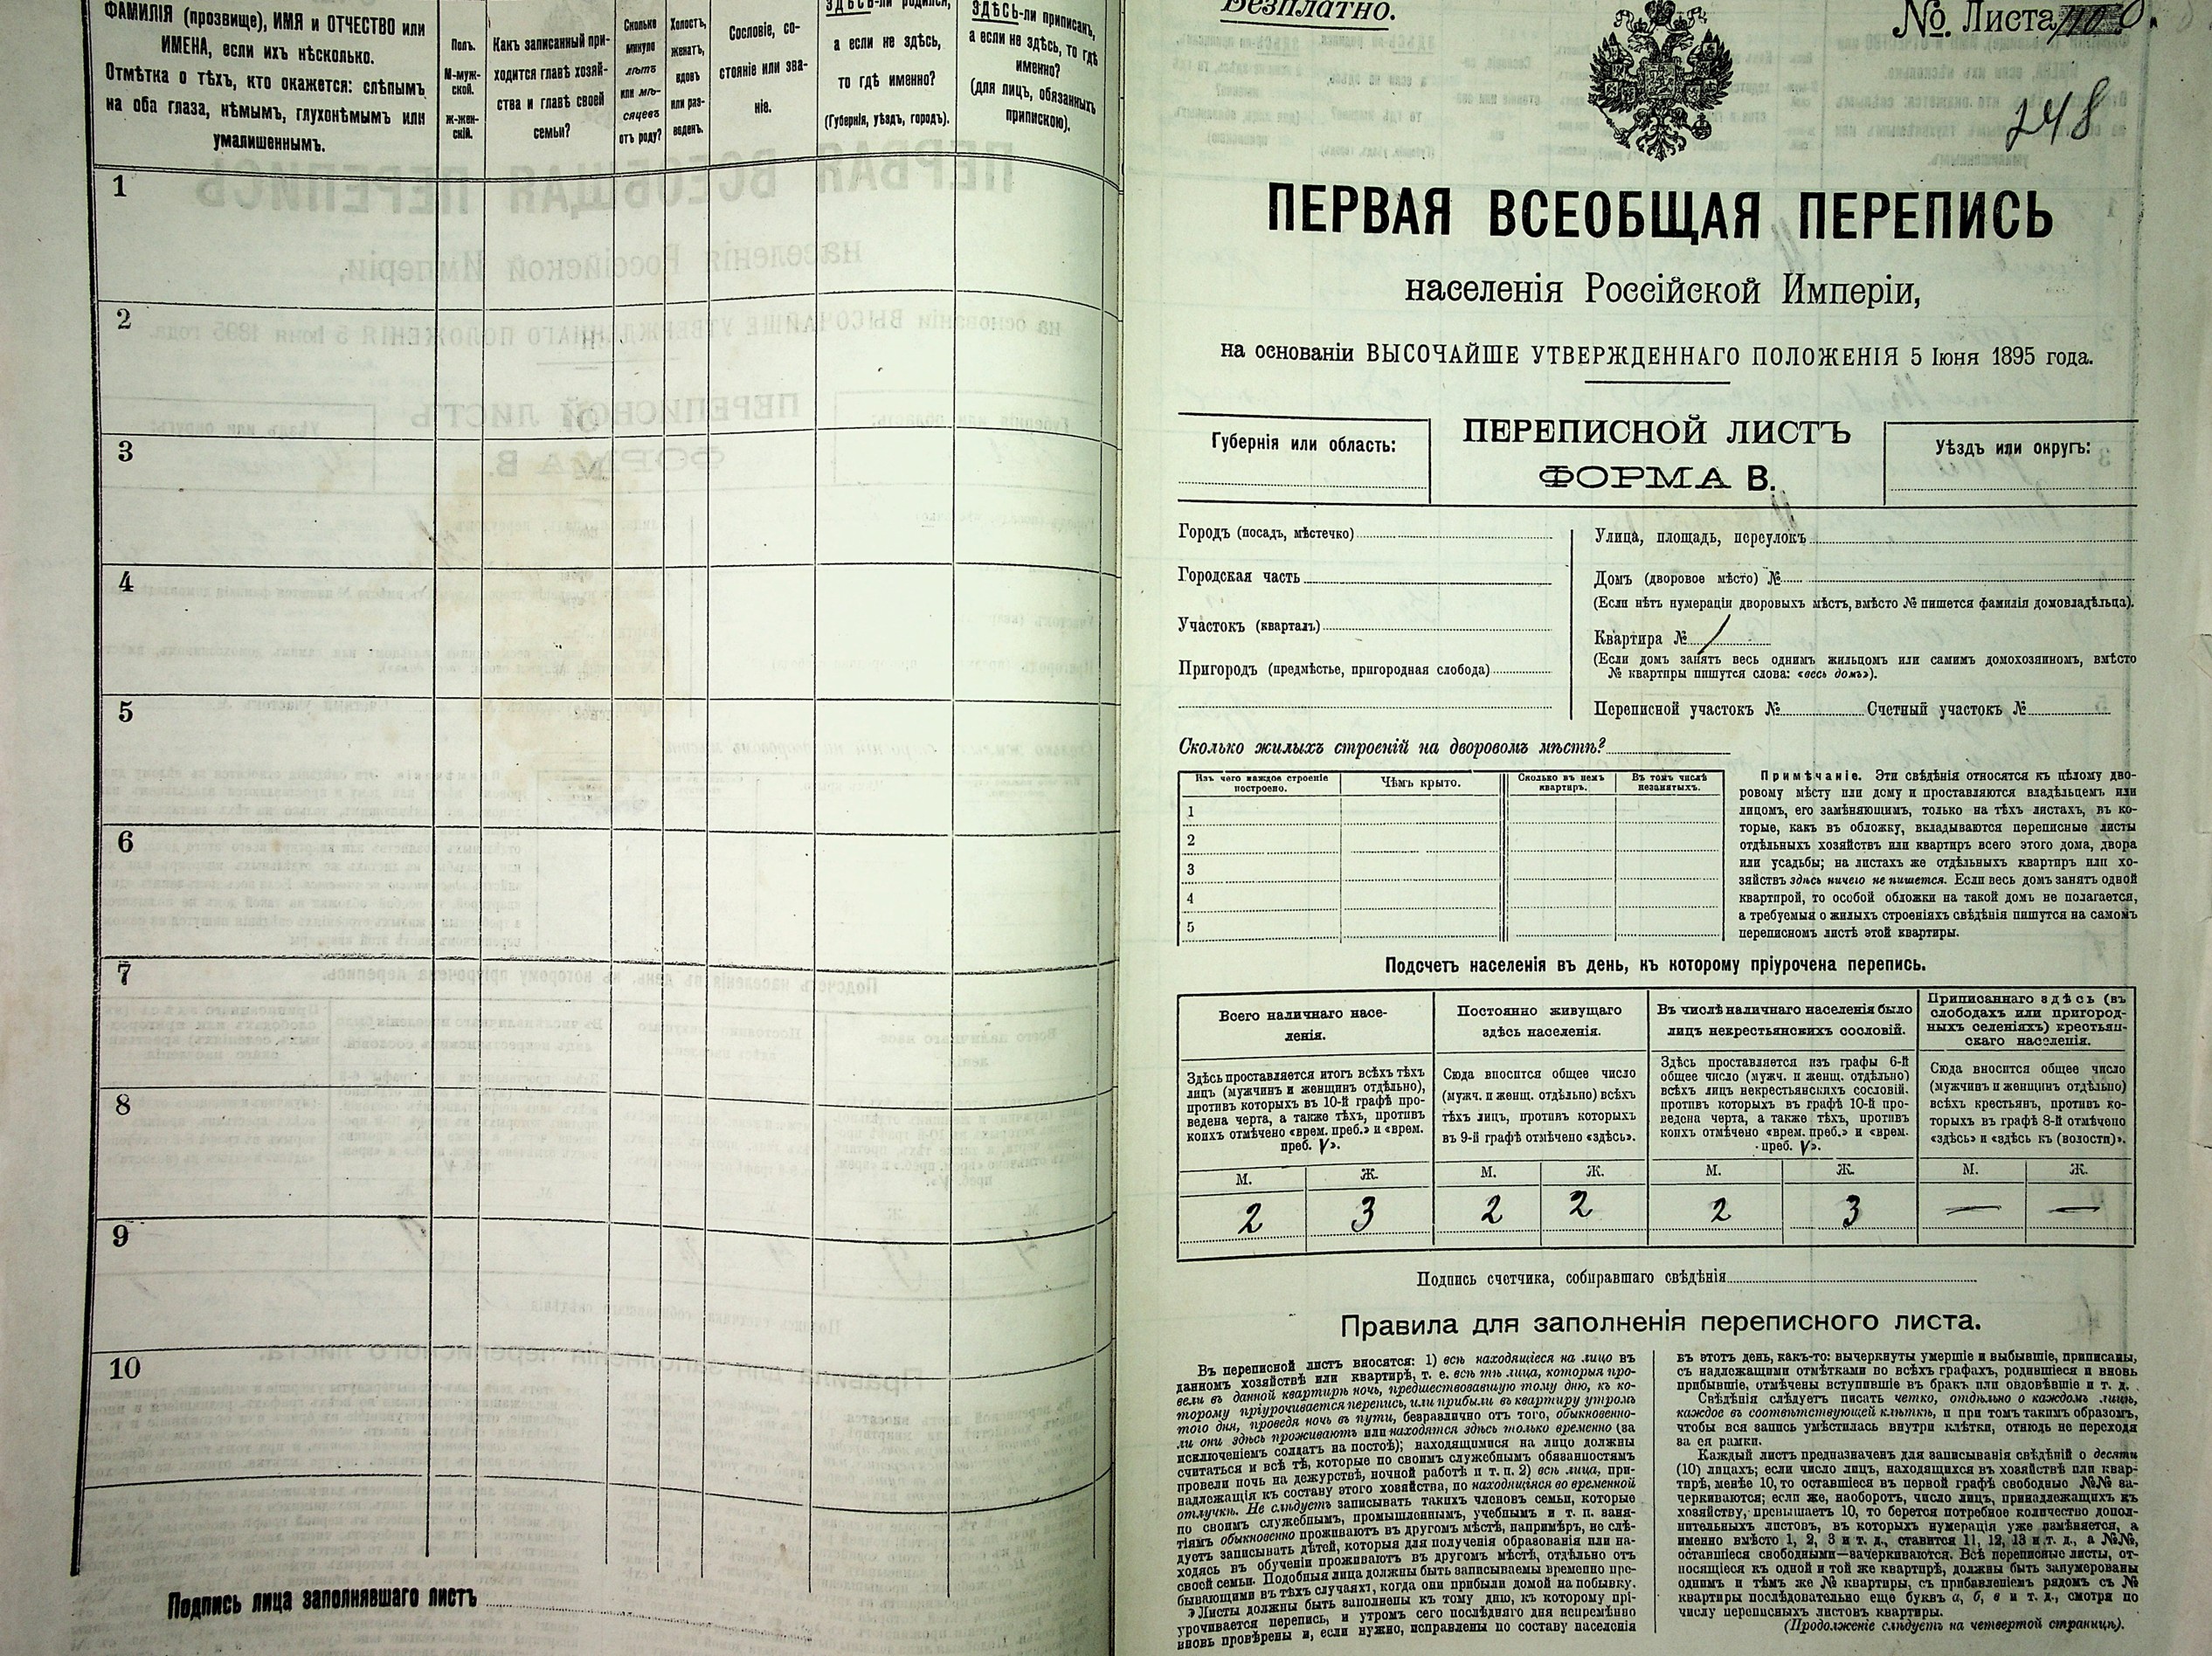 ФАМИЛІЯ (прозвище), ИМЯ и ОТЧЕСТВО или
ИМЕНА, если ихъ нѣсколько.
Отмѣтка о тѣхъ, кто окажется: слѣпымъ
на оба глаза, нѣмымъ, глухонѣмымъ или
умалишеннымъ.
Полъ.
М-муж-
ской.
ж-жен-
скій.
Какъ записанный при-
ходится главѣ хозяй-
ства и главѣ своей
семьи?
Сколько
минуло
лѣтъ
или мѣ-
сяцевъ
отъ роду?
Холостъ,
женатъ,
вдовъ
или раз-
веденъ.
Сословіе, со-
стояніе или зва-
ніе.
ЗДѢСЬ-ли родился,
а если не здѣсь,
то гдѣ именно?
(Губернія, уѣздъ, городъ).
ЗДѢСЬ-ли приписанъ,
а если не здѣсь, то гдѣ
именно?
(для лицъ, обязанныхъ
припискою).
1
2
3
4
5
6
7
8
9
10
Подпись лица заполнявшаго листъ
Безплатно.
№ Листа
248
ПЕРВАЯ ВСЕОБЩАЯ ПЕРЕПИСЬ
населенія Россійской Имперіи,
на основаніи ВЫСОЧАЙШЕ УТВЕРЖДЕННАГО ПОЛОЖЕНІЯ 5 Іюня 1895 года.
Губернія или область:
ПЕРЕПИСНОЙ ЛИСТЪ
ФОРМА В.
Уѣздъ или округъ:
Городъ (посадъ, мѣстечко)
Городская часть
Участокъ (кварталъ)
Пригородъ (предмѣстье, пригородная слобода)
Улица, площадь, переулокъ
Домъ (дворовое мѣсто) №
(Если нѣтъ нумераціи дворовыхъ мѣстъ, вмѣсто № пишется фамилія домовладѣльца).
Квартира № 1
(Если домъ занятъ весь однимъ жильцомъ или самимъ домохозяиномъ, вмѣсто
№ квартиры пишутся слова: «весь домъ»).
Переписной участокъ № Счетный участокъ №
Сколько жилыхъ строеній на дворовомъ мѣстѣ?
Изъ чего каждое строеніе
построено.
Чѣмъ крыто.
Сколько въ немъ
квартиръ.
Въ томъ числѣ
незанятыхъ.
1
2
3
4
5
Примѣчаніе. Эти свѣдѣнія относятся къ цѣлому дво-
ровому мѣсту или дому и проставляются владѣльцемъ или
лицомъ, его замѣняющимъ, только на тѣхъ листахъ, въ ко-
торые, какъ въ обложку, вкладываются переписные листы
отдѣльныхъ хозяйствъ или квартиръ всего этого дома, двора
или усадьбы; на листахъ же отдѣльныхъ квартиръ или хо-
зяйствъ здѣсь ничего не пишется. Если весь домъ занятъ одной
квартирой, то особой обложки на такой домъ не полагается,
а требуемыя о жилыхъ строеніяхъ свѣдѣнія пишутся на самомъ
переписномъ листѣ этой квартиры.
Подсчетъ населенія въ день, къ которому пріурочена перепись.
Всего наличнаго насе-
ленія.
Здѣсь проставляется итогъ всѣхъ тѣхъ
лицъ (мужчинъ и женщинъ отдѣльно),
противъ которыхъ въ 10-й графѣ про-
ведена черта, а также тѣхъ, противъ
коихъ отмѣчено «врем. преб.» и «врем.
преб. V».
Постоянно живущаго
здѣсь населенія.
Сюда вносится общее число
(мужч. и женщ. отдѣльно) всѣхъ
тѣхъ лицъ, противъ которыхъ
въ 9-й графѣ отмѣчено «здѣсь».
Въ числѣ наличнаго населенія было
лицъ некрестьянскихъ сословій.
Здѣсь проставляется изъ графы 6-й
общее число (мужч. и женщ. отдѣльно)
всѣхъ лицъ некрестьянскихъ сословій,
противъ которыхъ въ графѣ 10-й про-
ведена черта, а также тѣхъ, противъ
коихъ отмѣчено «врем. преб.» и «врем.
преб. V».
Приписаннаго здѣсь (въ
слободахъ или пригород-
ныхъ селеніяхъ) крестьян-
скаго населенія.
Сюда вносится общее число
(мужчинъ и женщинъ отдѣльно)
всѣхъ крестьянъ, противъ ко-
торыхъ въ графѣ 8-й отмѣчено
«здѣсь» и «здѣсь къ (волости)».
М. Ж. М. Ж. М. Ж. М. Ж.
2 3 2 2 2 3 — —
Подпись счетчика, собиравшаго свѣдѣнія
Правила для заполненія переписного листа.
Въ переписной листъ вносятся: 1) всѣ находящіеся на лицо въ
данномъ хозяйствѣ или квартирѣ, т. е. всѣ тѣ лица, которыя про-
вели въ данной квартирѣ ночь, предшествовавшую тому дню, къ ко-
торому пріурочивается перепись, или прибыли въ квартиру утромъ
того дня, проведя ночь въ пути, безразлично отъ того, обыкновенно-
ли они здѣсь проживаютъ или находятся здѣсь только временно (за
исключеніемъ солдатъ на постоѣ); находящимися на лицо должны
считаться и всѣ тѣ, которые по своимъ служебнымъ обязанностямъ
провели ночь на дежурствѣ, ночной работѣ и т. п. 2) всѣ лица, при-
надлежащія къ составу этого хозяйства, но находящіяся во временной
отлучкѣ. Не слѣдуетъ записывать такихъ членовъ семьи, которые
по своимъ служебнымъ, промышленнымъ, учебнымъ и т. п. заня-
тіямъ обыкновенно проживаютъ въ другомъ мѣстѣ, напримѣръ, не слѣ-
дуетъ записывать дѣтей, которыя для полученія образованія или на-
ходясь въ обученіи проживаютъ въ другомъ мѣстѣ, отдѣльно отъ
своей семьи. Подобныя лица должны быть записываемы временно пре-
бывающими въ тѣхъ случаяхъ, когда они прибыли домой на побывку.
Листы должны быть заполнены къ тому дню, къ которому прі-
урочивается перепись, и утромъ сего послѣдняго дня непремѣнно
вновь провѣрены и, если нужно, исправлены по составу населенія
въ этотъ день, какъ-то: вычеркнуты умершіе и выбывшіе, приписаны,
съ надлежащими отмѣтками во всѣхъ графахъ, родившіеся и вновь
прибывшіе, отмѣчены вступившіе въ бракъ или овдовѣвшіе и т. д.
Свѣдѣнія слѣдуетъ писать четко, отдѣльно о каждомъ лицѣ,
каждое въ соотвѣтствующей клѣткѣ, и при томъ такимъ образомъ,
чтобы вся запись умѣстилась внутри клѣтки, отнюдь не переходя
за ея рамки.
Каждый листъ предназначенъ для записыванія свѣдѣній о десяти
(10) лицахъ; если число лицъ, находящихся въ хозяйствѣ или квар-
тирѣ, менѣе 10, то оставшіеся въ первой графѣ свободные №№ за-
черкиваются; если же, наоборотъ, число лицъ, принадлежащихъ къ
хозяйству, превышаетъ 10, то берется потребное количество допол-
нительныхъ листовъ, въ которыхъ нумерація уже измѣняется, а
именно вмѣсто 1, 2, 3 и т. д., ставится 11, 12, 13 и т. д., а №№,
оставшіеся свободными—зачеркиваются. Всѣ переписные листы, от-
носящіеся къ одной и той же квартирѣ, должны быть занумерованы
однимъ и тѣмъ же № квартиры, съ прибавленіемъ рядомъ съ №
квартиры послѣдовательно еще буквъ а, б, в и т. д., смотря по
числу переписныхъ листовъ квартиры.
(Продолженіе слѣдуетъ на четвертой страницѣ).